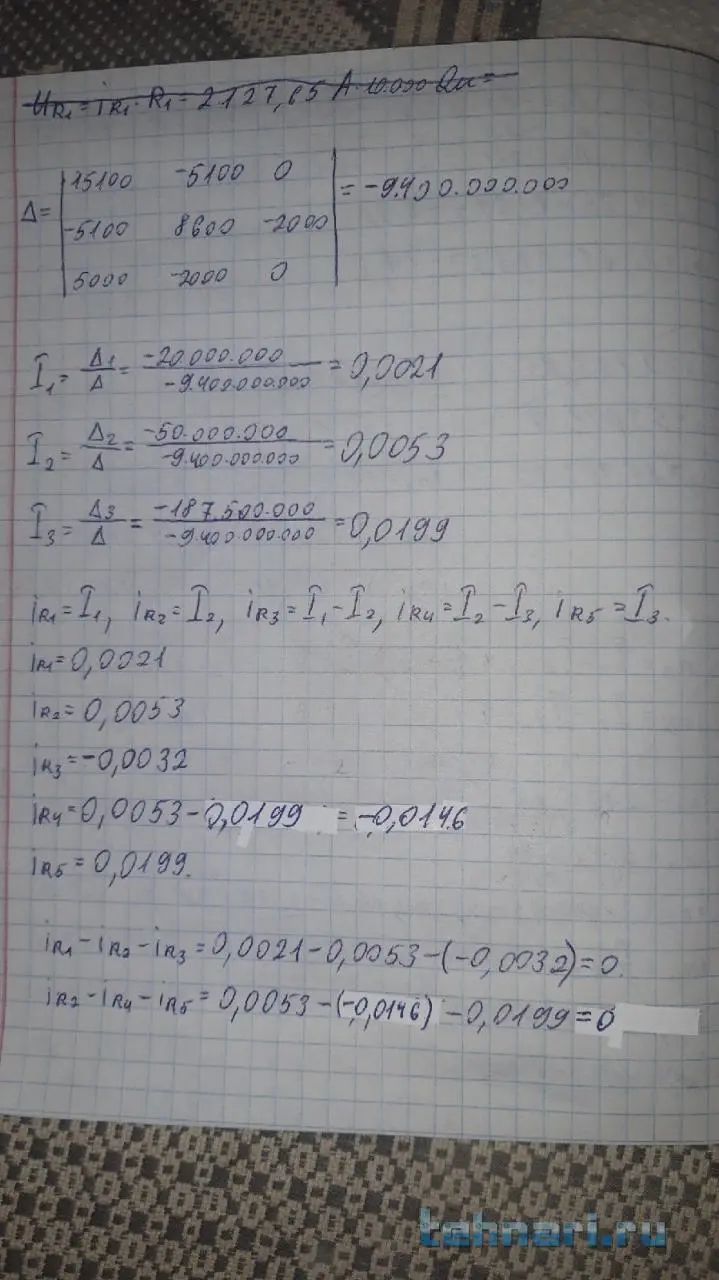 U_R1 = i_R1 · R1 = 2127,65 A · 10.000 Ом =
15100 -5100 0
Δ= -5100 8600 -2000 = -9.400.000.000
5000 -2000 0
I1 = Δ1/Δ = -20.000.000/-9.400.000.000 = 0,0021
I2 = Δ2/Δ = -50.000.000/-9.400.000.000 = 0,0053
I3 = Δ3/Δ = -187.500.000/-9.400.000.000 = 0,0199
i_R1 = I1, i_R2 = I2, i_R3 = I1 - I2, i_R4 = I2 - I3, i_R5 = I3.
i_R1 = 0,0021
i_R2 = 0,0053
i_R3 = -0,0032
i_R4 = 0,0053 - 0,0199 = -0,0146
i_R5 = 0,0199.
i_R1 - i_R2 - i_R3 = 0,0021 - 0,0053 - (-0,0032) = 0.
i_R2 - i_R4 - i_R5 = 0,0053 - (-0,0146) - 0,0199 = 0
tahnari.ru